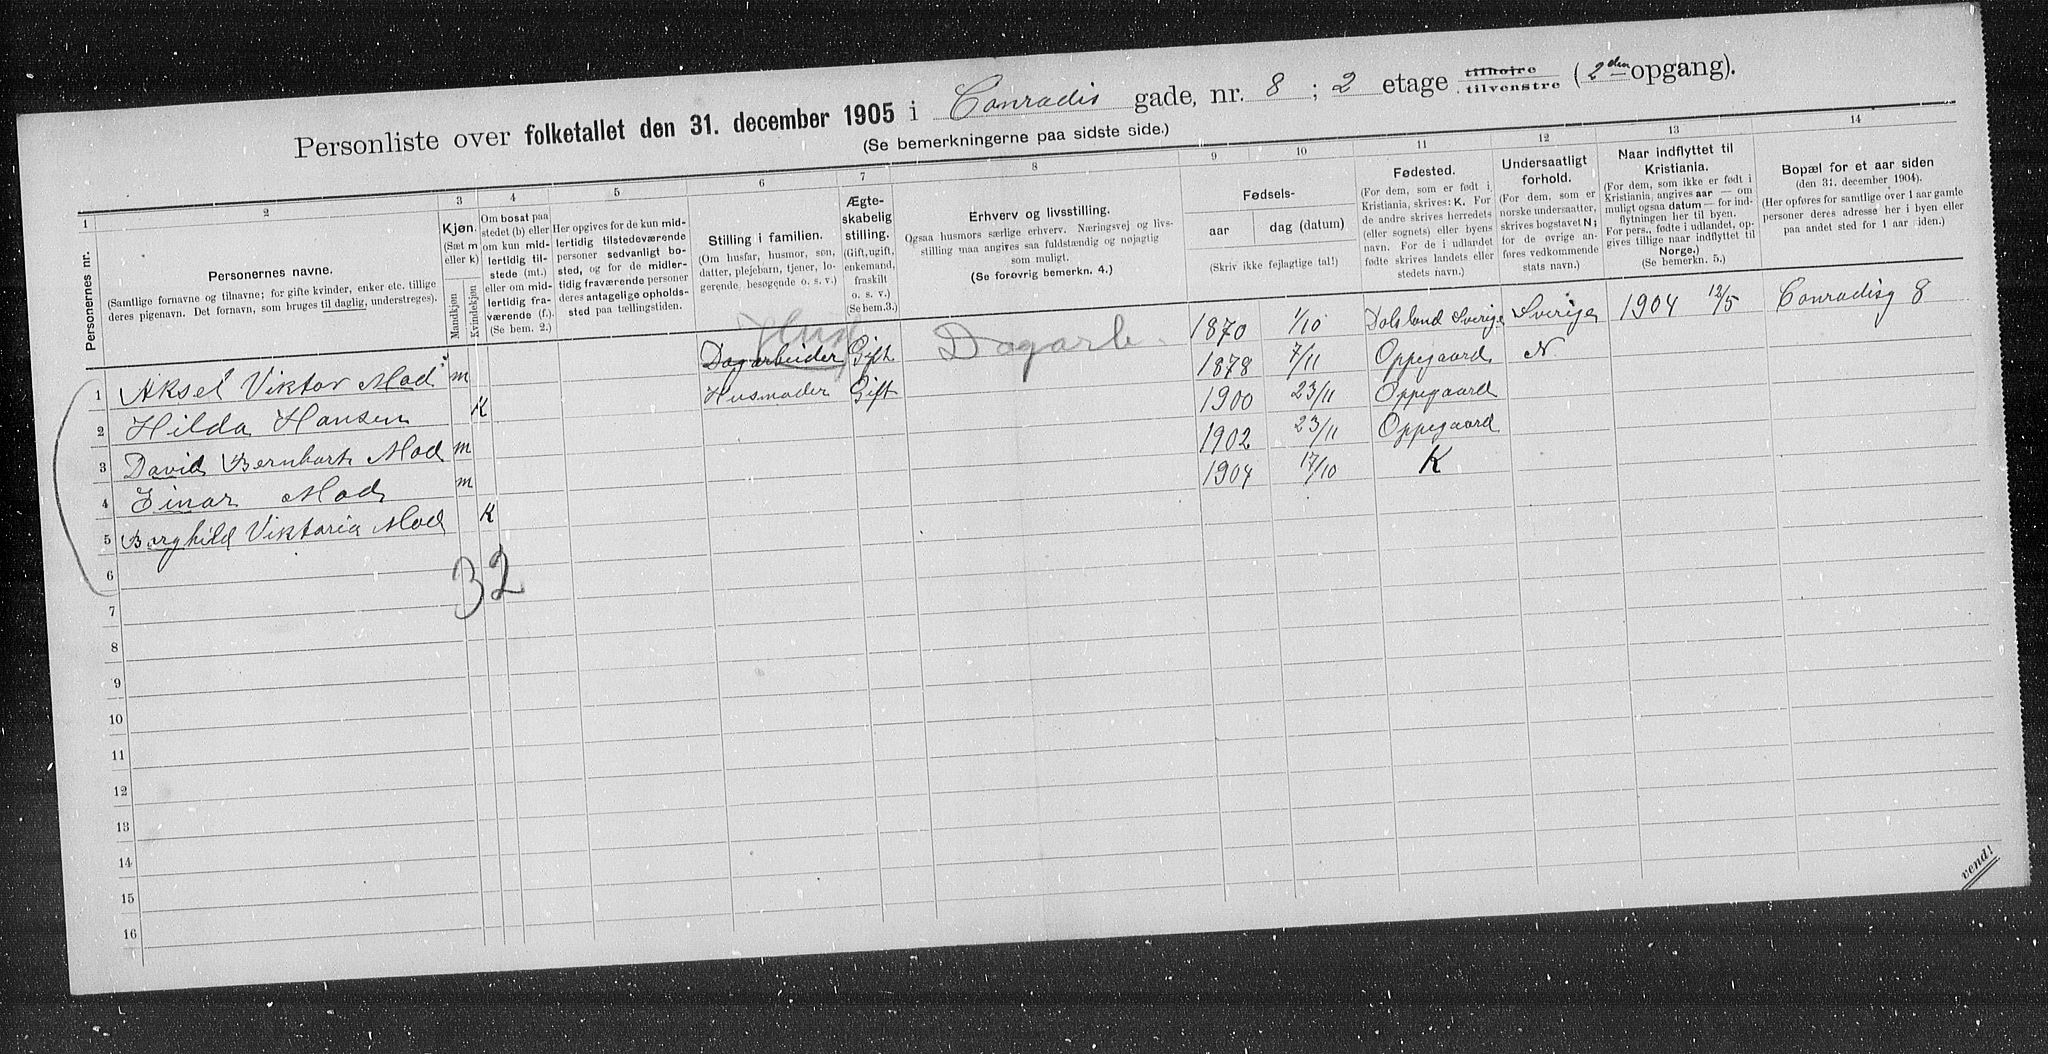 Personliste over folketallet den 31. december 1905 i Conradis gade, nr. 8 ; 2 etage tilhøire tilvenstre (2den opgang).
(Se bemerkningerne paa sidste side.)
1 2 3 4 5 6 7 8 9 10 11 12 13 14
Personernes nr.
Personernes navne.
(Samtlige fornavne og tilnavne; for gifte kvinder, enker etc. tillige
deres pigenavn. Det fornavn, som bruges til daglig, understreges).
Kjøn.
(Sæt m
eller k)
Mandkjøn
Kvindekjøn
Om bosat paa
stedet (b) eller
om kun mid-
lertidig til-
stede (mt.)
eller om mid-
lertidig fra-
værende (f.).
(Se bem. 2.)
Her opgives for de kun mid-
lertidig tilstedeværende
personer sedvanligt bo-
sted, og for de midler-
tidig fraværende personer
deres antagelige opholds-
sted paa tællingstiden.
Stilling i familien.
(Om husfar, husmor, søn,
datter, plejebarn, tjener, lo-
gerende, besøgende o. s. v.)
Ægte-
skabelig
stilling.
(Gift, ugift,
enkemand,
fraskilt
o. s. v.)
(Se bem. 3.)
Erhverv og livsstilling.
Ogsaa husmors særlige erhverv. Næringsvej og livs-
stilling maa angives saa fuldstændig og nøjagtig
som muligt.
(Se forøvrig bemerkn. 4.)
Fødsels-
aar dag (datum)
(Skriv ikke fejlagtige tal!)
Fødested.
(For dem, som er født i
Kristiania, skrives: K. For
de andre skrives herredets
(eller sognets) eller byens
navn. For de i udlandet
fødte skrives landets eller
stedets navn.)
Undersaatligt
forhold.
(For dem, som er
norske undersaatter,
skrives bogstavet N;
for de øvrige an-
føres vedkommende
stats navn.)
Naar indflyttet til
Kristiania.
(For dem, som ikke er født i
Kristiania, angives aar — om
muligt ogsaa datum — for ind-
flytningen her til byen.
For pers., fødte i udlandet, op-
gives tillige naar indflyttet til
Norge.)
(Se bemerkn. 5.)
Bopæl for et aar siden
(den 31. december 1904).
(Her opføres for samtlige over 1 aar gamle
personer deres adresse her i byen eller
paa andet sted for 1 aar siden.)
1 Aksel Viktor Mod m Husf Dagarbeider Gift Dagarb. 1870 1/10 Dalsland Sverige Sverige 1904 12/5 Conradisg 8
2 Hilda Hansen K Husmoder Gift 1878 7/11 Oppegaard N
3 David Bernhart Mod m 1900 23/11 Oppegaard
4 Einar Mod m 1902 23/11 Oppegaard
5 Borghild Viktoria Mod K 1904 17/10 K
6
3 2
7
8
9
10
11
12
13
14
15
16
vend!